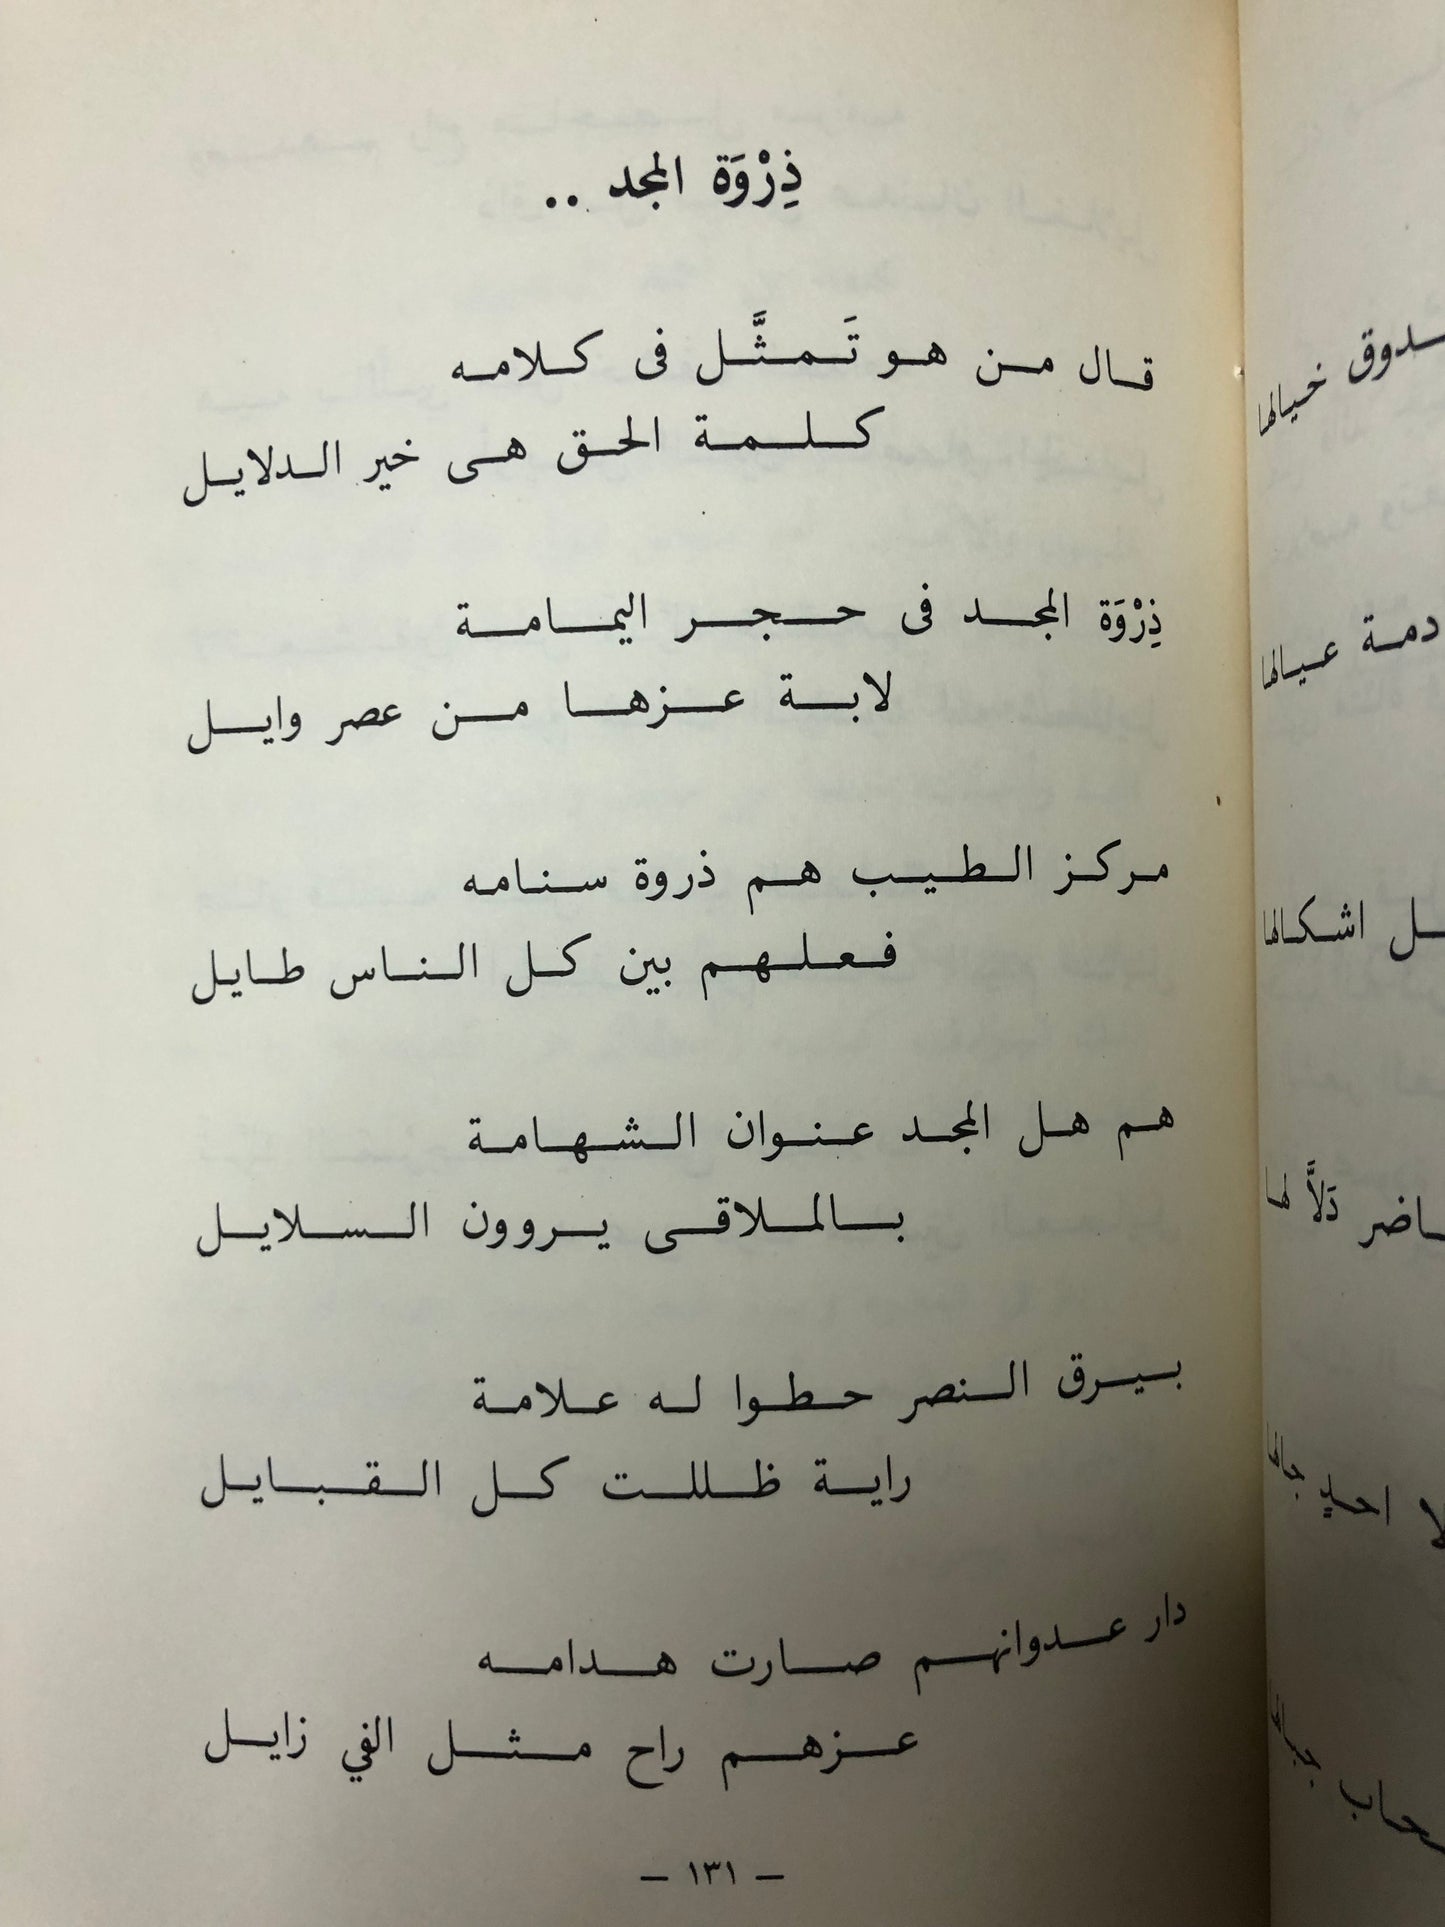 ذِرْوَة المجد ..
قال من هو تَمثَّل فى كلامه
كلمة الحق هى خير الدلايل
ذِرْوَة المجد فى حجر اليمامة
لابة عزها من عصر وايل
مركز الطيب هم ذروة سنامه
فعلهم بين كل الناس طايل
هم هل المجد عنوان الشهامة
بالملاقى يروون السلايل
بيرق النصر حطوا له علامة
راية ظللت كل القبايل
دار عدوانهم صارت هدامه
عزهم راح مثل الفي زايل
— ١٣١ —
خيالها
عيالها
اشكالها
دَلاَّلها
احدٍ جالها